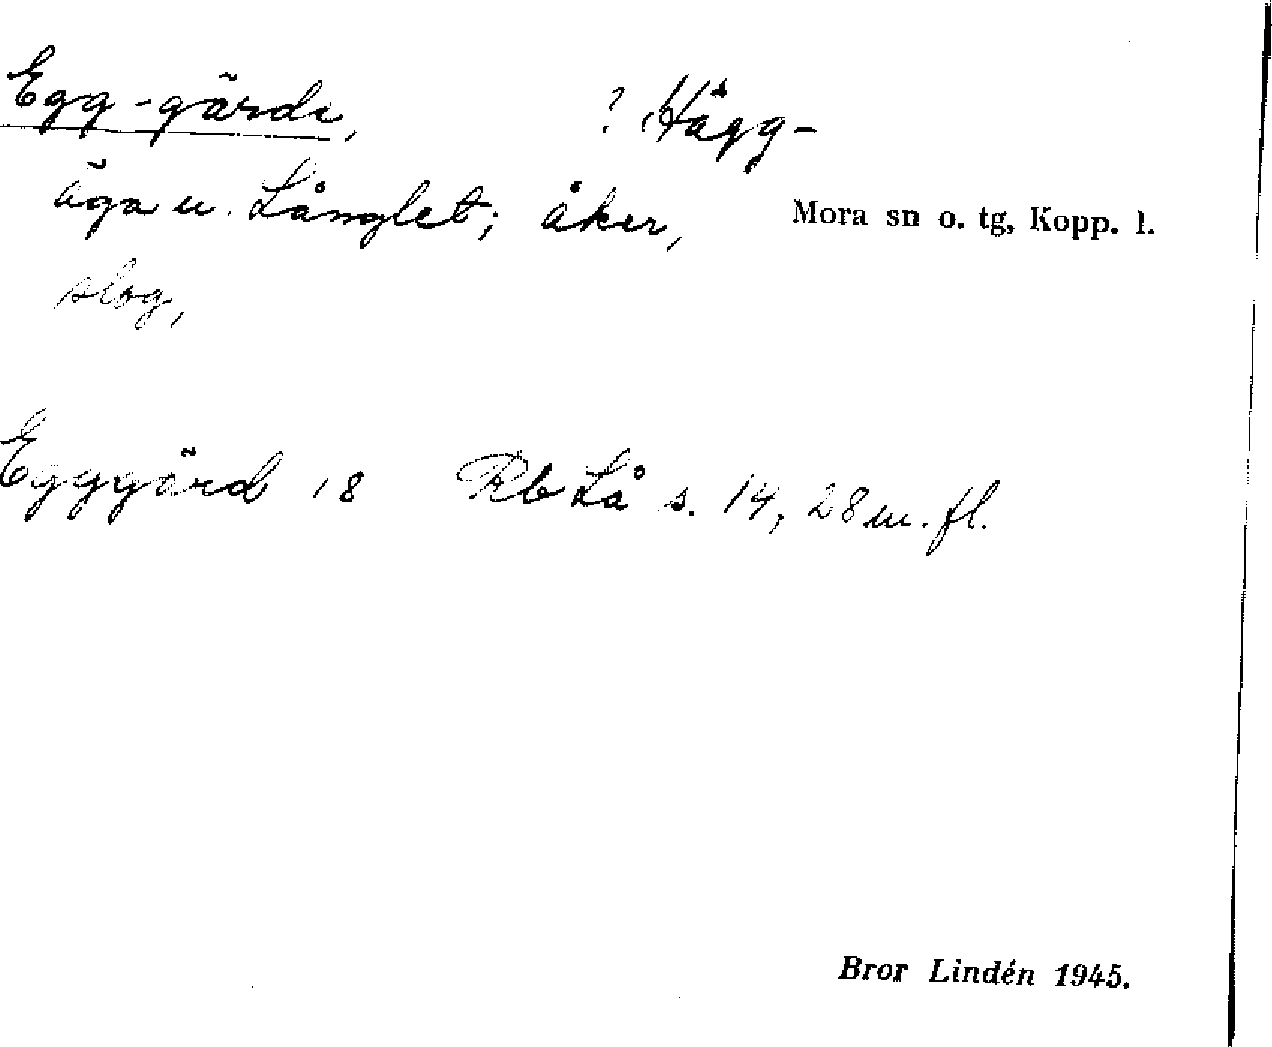 Egg-gärde, ? Hägg-
äga u. Långlet; åker, Mora sn o. tg, Kopp. l.
slog,
Egggärd 18 Rb Lå s. 14, 28 m. fl.
Bror Lindén 1945.